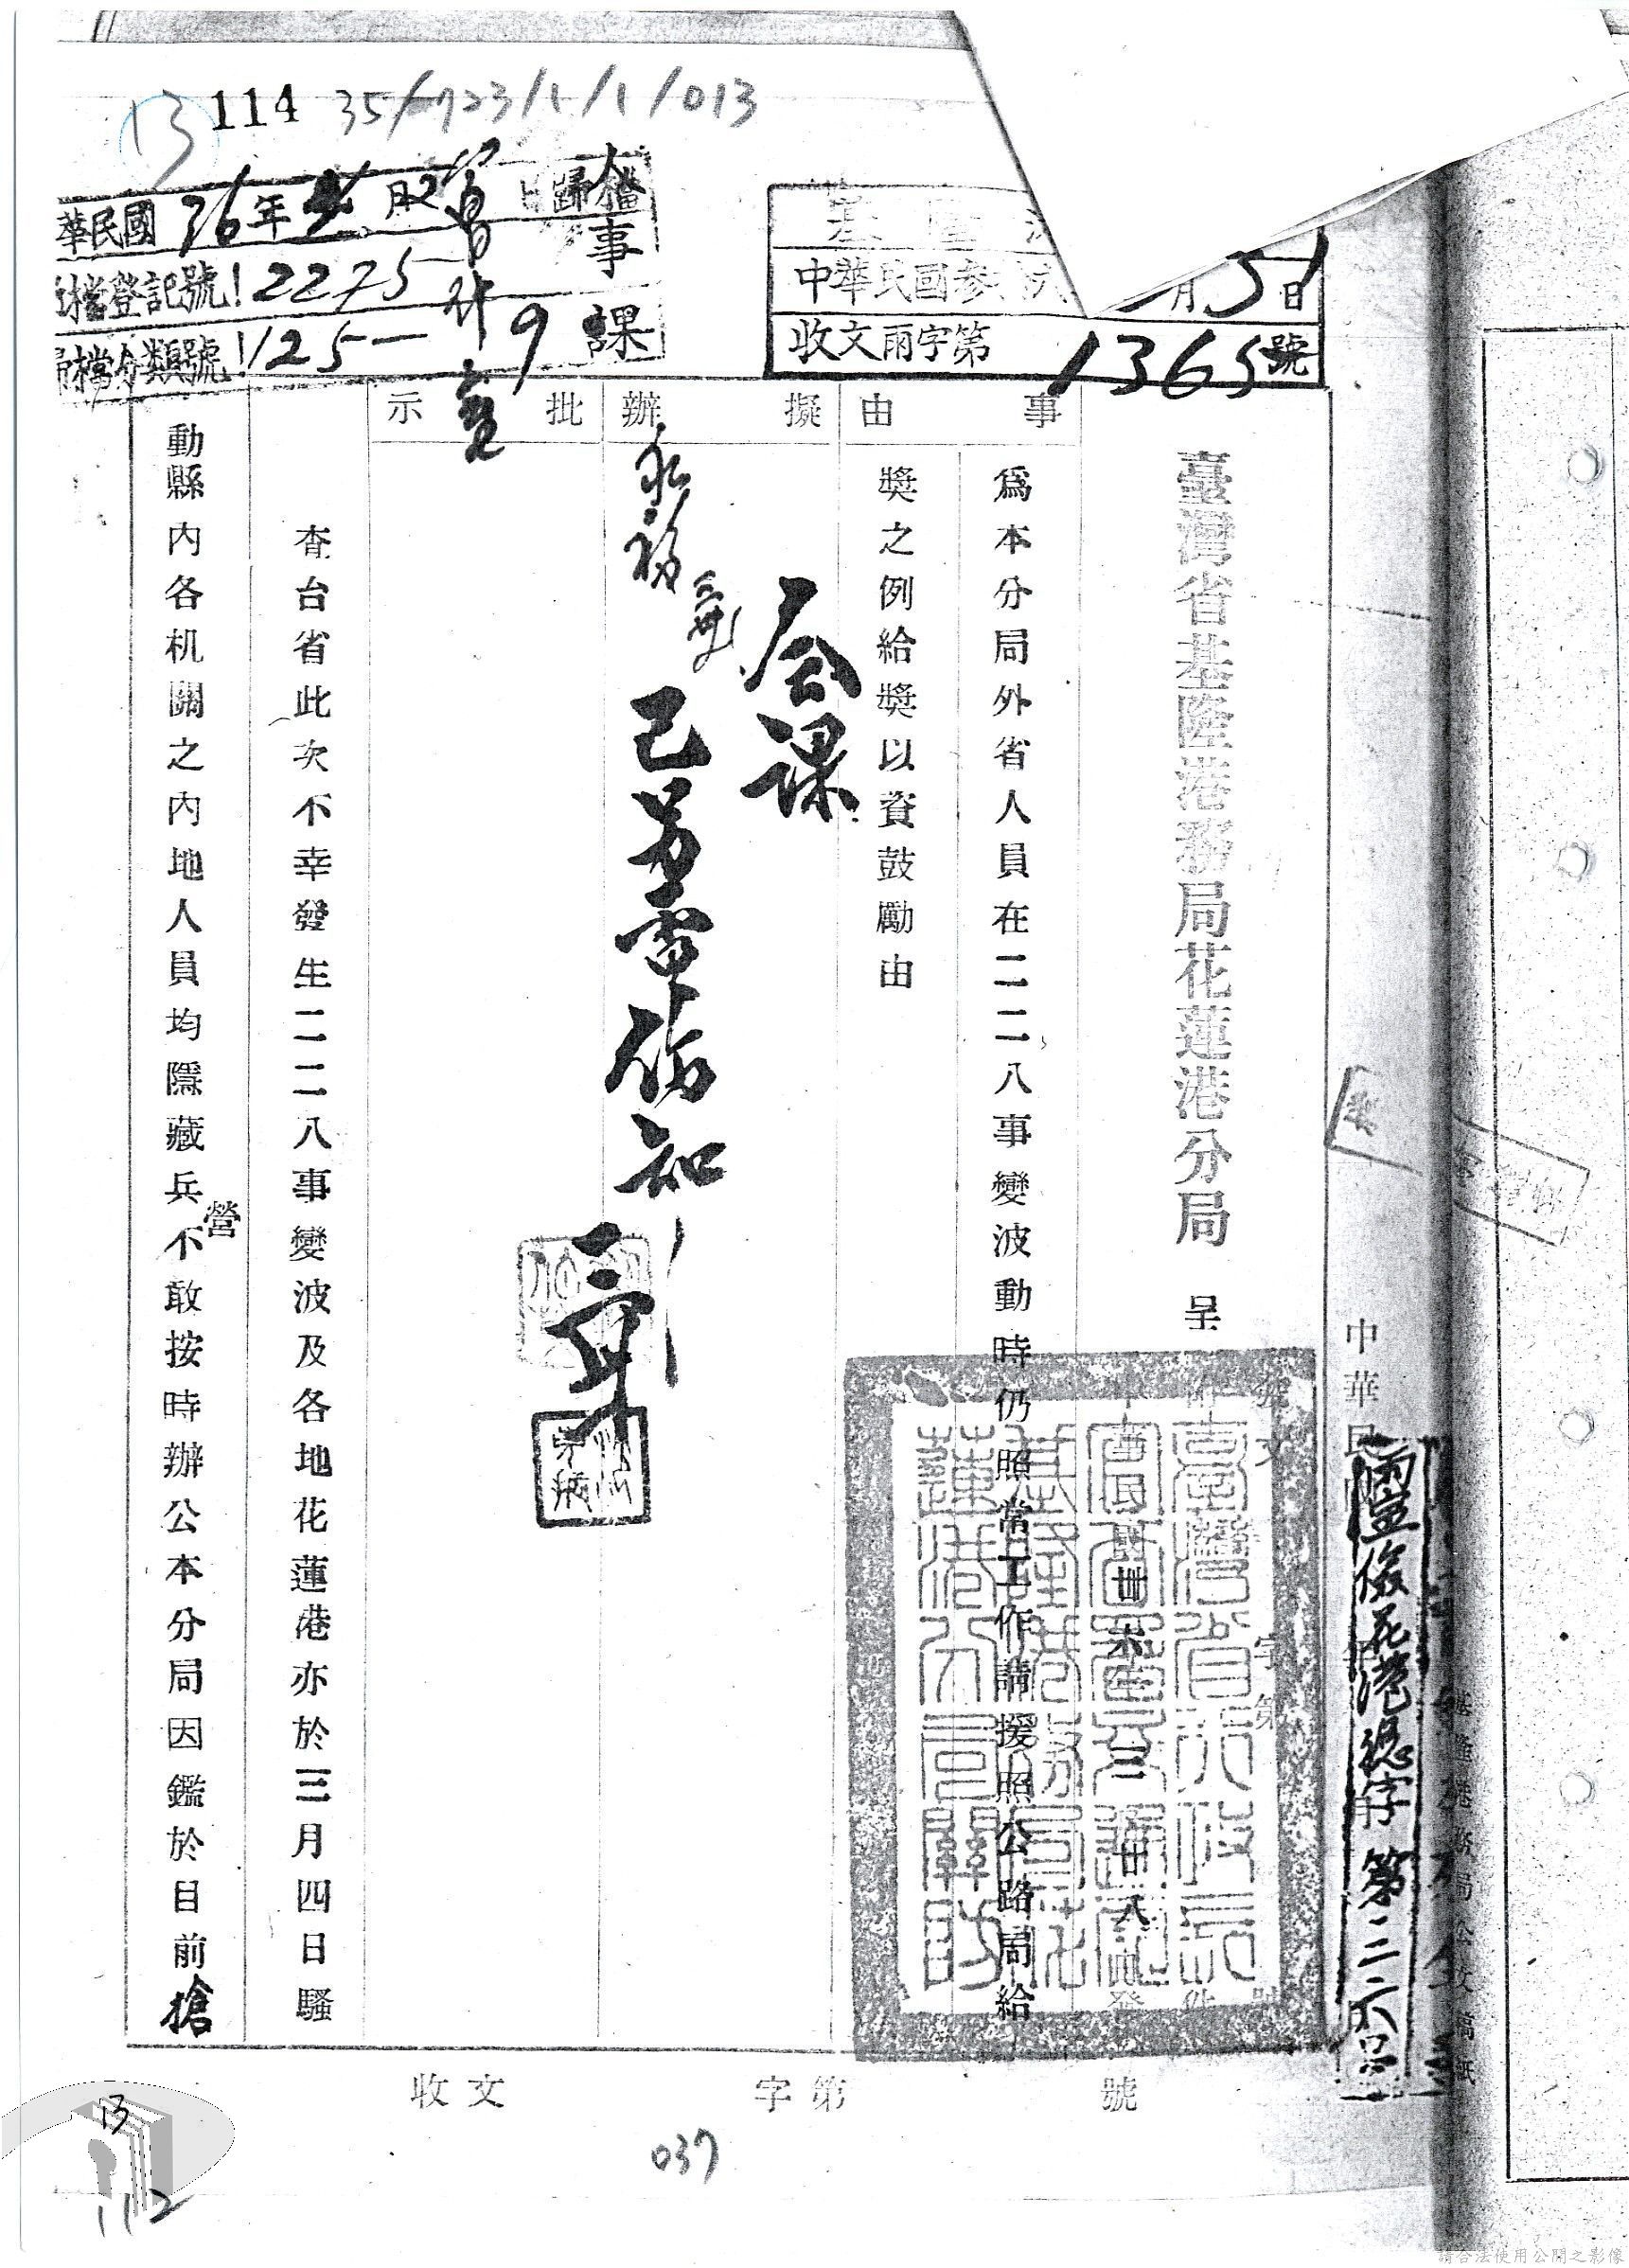 13
114
35/723/1/1/013
人事課
歸檔
華民國36年4月2日
檔登記號!2275
檔分類號!125-9
基隆
中華民國參 月5日
收文雨字第1365號
事由
擬辦
批示
臺灣省基隆港務局花蓮港分局 呈
為本分局外省人員在二二八事變波動時仍照常工作請援照公路局給
獎之例給獎以資鼓勵由
會課
已另電飭知
查台省此次不幸發生二二八事變波及各地花蓮港亦於三月四日騷
動縣內各机關之內地人員均隱藏兵營不敢按時辦公本分局因鑑於目前搶
民國卅六 三 廿八 發
臺灣省行政
基隆港務局花
蓮港分局關防
中華民
花港總字第二二六號
基隆港務局公文稿紙
收文 字第 號
037
13
112
請合法使用公開之影像